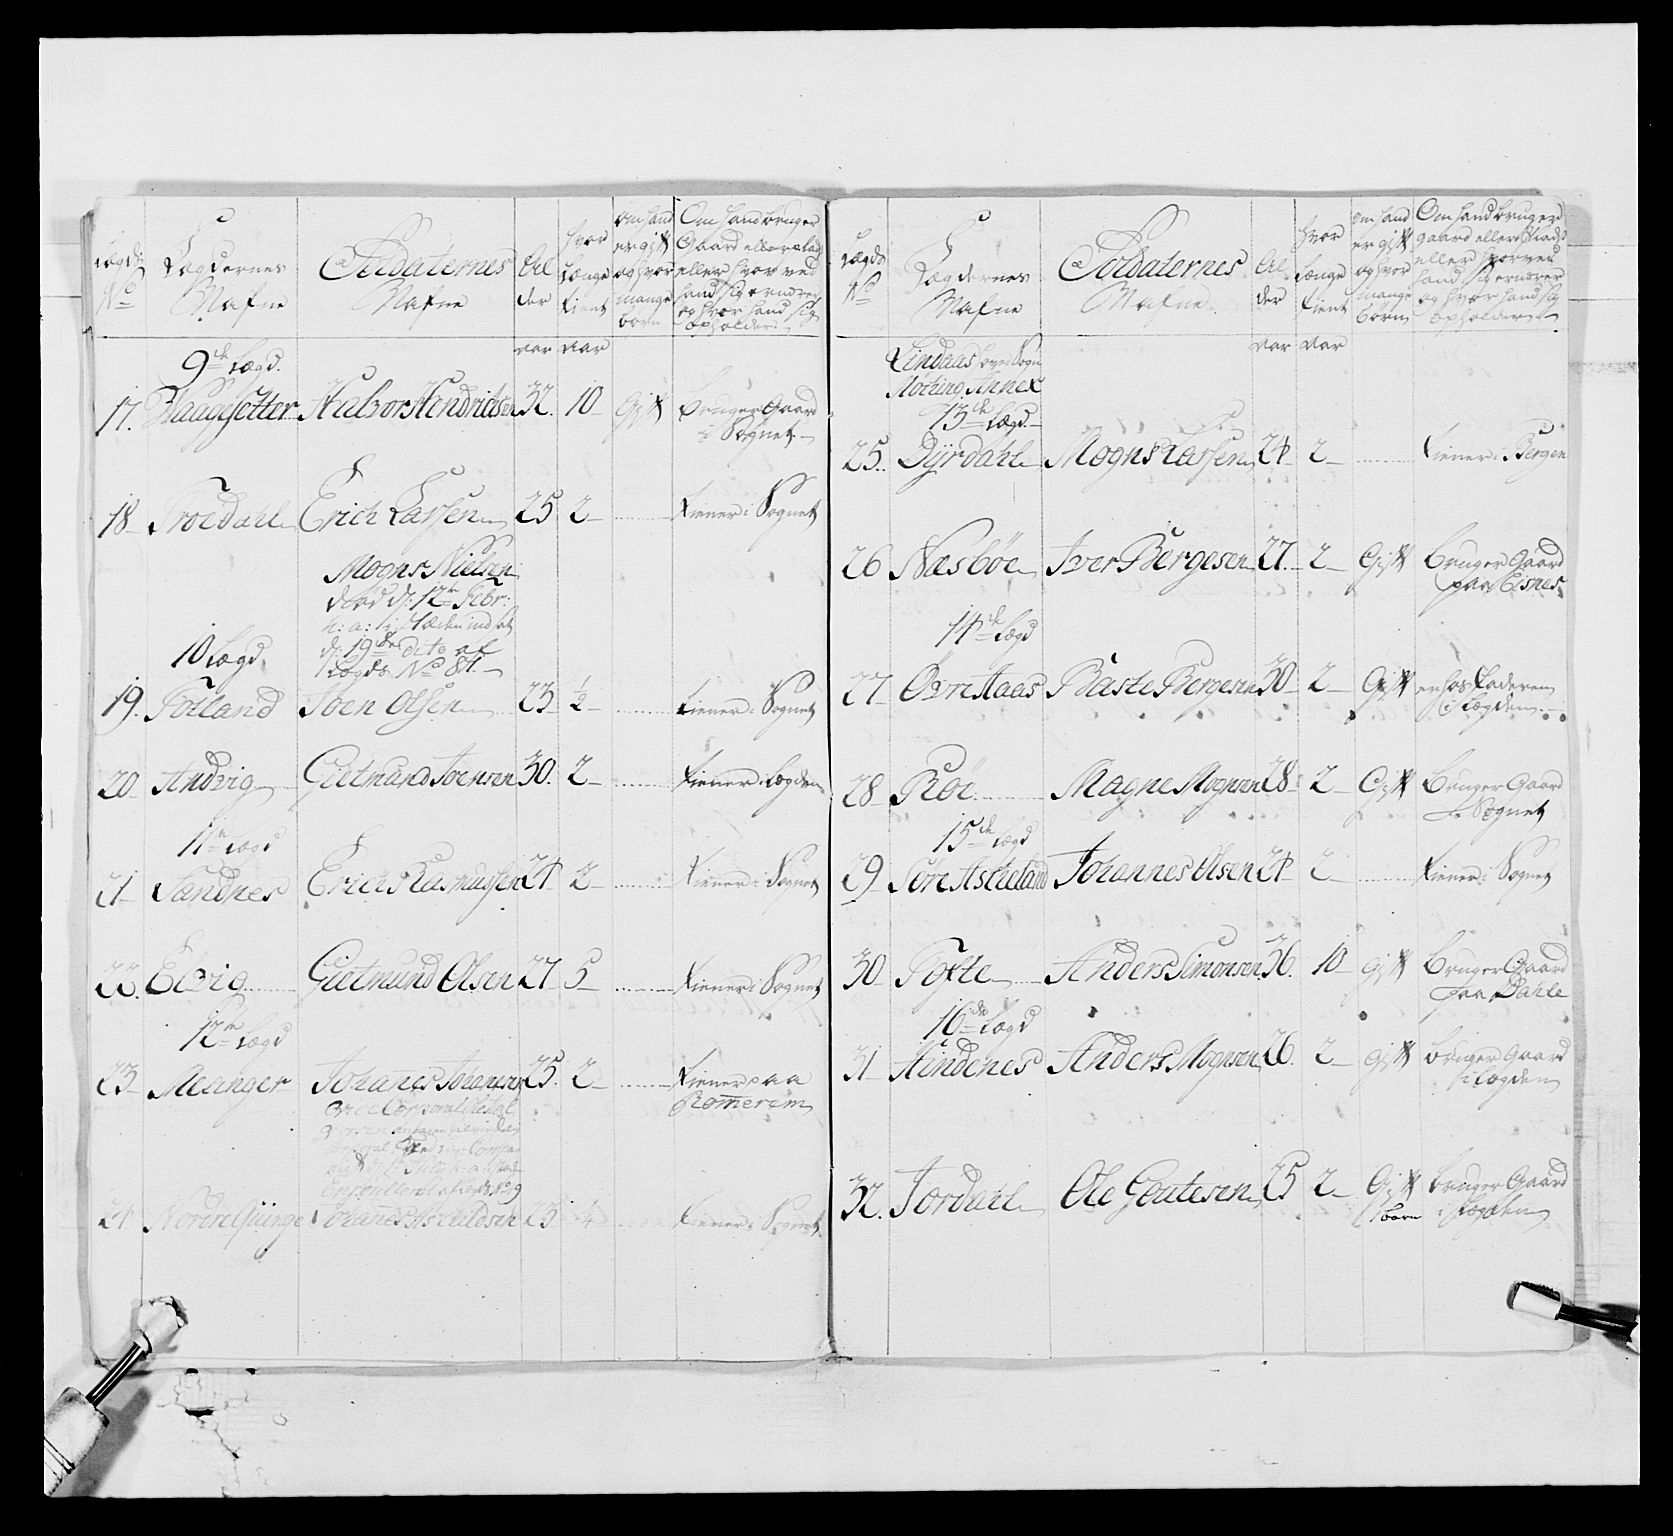 Lægds No
Lægdernes Nafne
Soldaternes Nafne
Al der
hvor længe tient
om hand er gift og hvor mange børn
Om hand bruger Gaard eller plads eller hvor ved hand sig ernærer og hvor hand sig opholder
aar aar
9de Lægd.
17. Haugsetter Halvor Hendrichsen 32. 10 Gift bruger Gaard
i Sognet
18 Troedahl Erich Larsen 25 2 tiener i Sognet
Mogns Nielsen
død d: 12te Febr:
h: a: i Stæden ind sat
d: 19de dito af
Lægds No 84.
10 Lægd
19. Fotland Joen Olsen 23 ½ tiener i Sognet
20 Andvig Gietmund Joensen 30. 2 tiener i Lægden
11te Lægd
21 Sandnes Erich Rasmussen 24 2 tiener i Sognet
22. Elvig Gietmund Olsen 27 5 tiener i Sognet
12te Lægd
23 Meanger Johanes Johanesen 25. 2 tiener paa
Romerem
24 Nordre Giinge Johanes Askildsen 23 ¼ tiener i Sognet
Lægds No
Lægdernes Nafne
Soldaternes Nafne
Al der
hvor længe tient
om hand er gift og hvor mange børn
Om hand bruger gaard eller Plads eller hvor ved hand sig ernærer og hvor hand sig opholder
aar aar
Lindaas hoved Sogn
Annex
13de Lægd.
25. Dyrdahl Mogns Larsen 24 2 tiener i Bergen
26 Næsbøe Iver Bergesen 27. 2 Gift bruger Gaard
paa Eisnes
14de Lægd
27 Øvre Aaas Baste Bergesen 30 2 Gift er hos Faderen
i Lægden
28 Røe Magne Mognsen 28 2 Gift bruger Gaard
i Sognet
15de Lægd
29 Søre Askeland Johannes Olsen 24 2 tiener i Sognet
30 Tofte Anders Simonsen 36. 10 gift bruger Gaard
paa Dahle
16de Lægd
31 Hindenes Anders Mognsen 26. 2 gift bruger Gaard
i Lægden
32. Jordahl Ole Goutesen 25 2 Gift bruger Gaard
1 barn i Lægden